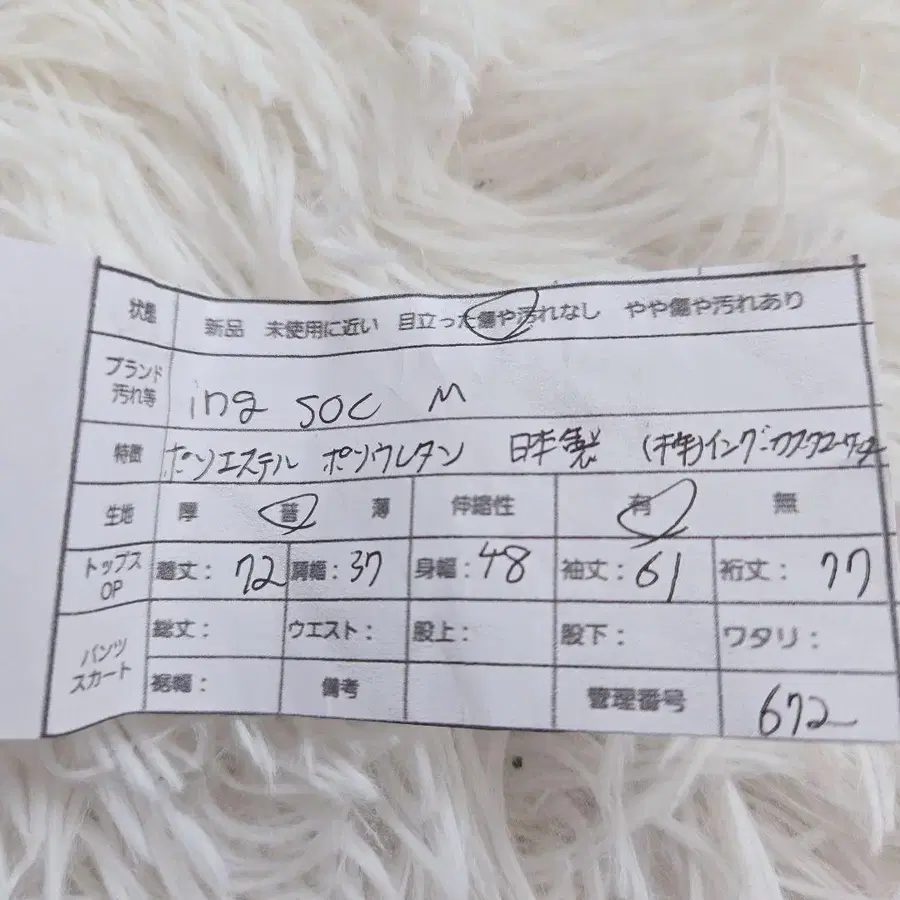 状態 新品 未使用に近い 目立った傷や汚れなし やや傷や汚れあり
ブランド
汚れ等 ing SOC M
特徴 ポリエステル ポリウレタン 日本製
生地 厚 普 薄 伸縮性 有 無
トップス
OP 着丈: 72 肩幅: 37 身幅: 48 袖丈: 61 裄丈: 77
パンツ
スカート 総丈: ウエスト: 股上: 股下: ワタリ:
裾幅: 備考 管理番号 672